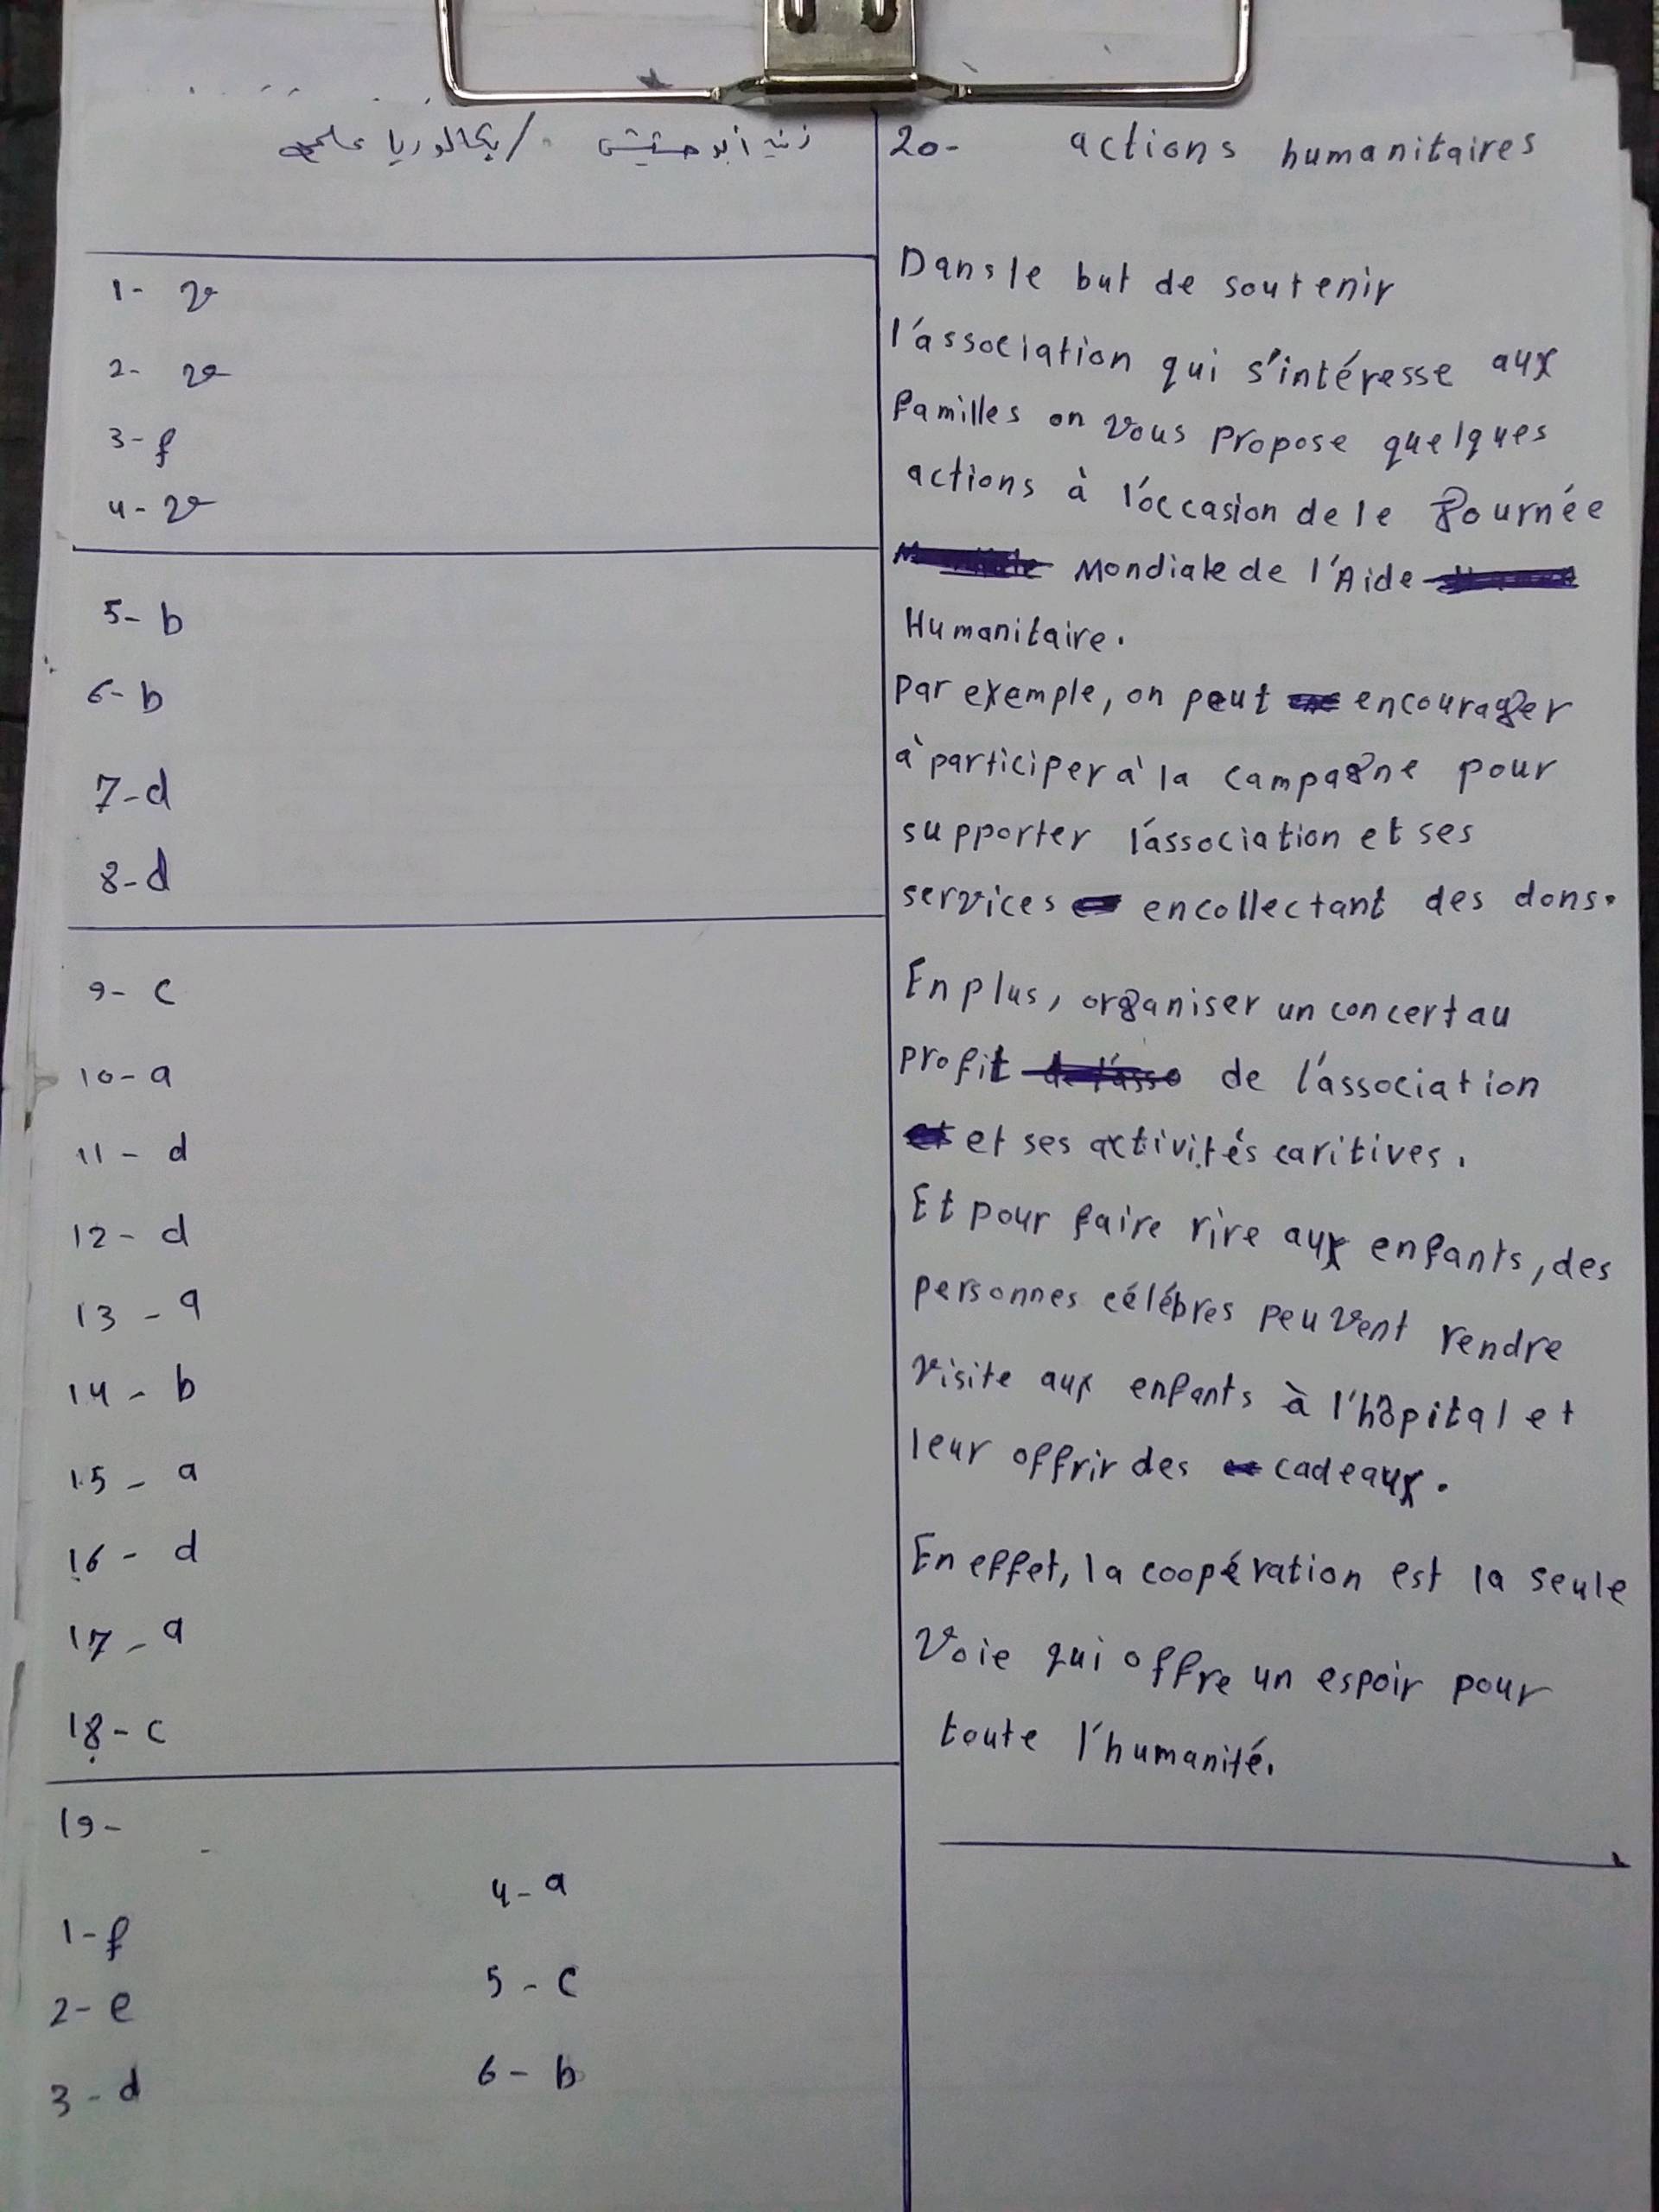 أبو حشيش / بكالوريا علمي
1- v
2- v
3- f
4- v
5- b
6- b
7- d
8- d
9- c
10- a
11- d
12- d
13- a
14- b
15- a
16- d
17- a
18- c
19-
1- f
2- e
3- d
4- a
5- c
6- b
20- actions humanitaires
Dans le but de soutenir
l'association qui s'intéresse aux
familles on vous propose quelques
actions à l'occasion de le Journée
Mondiale de l'Aide
Humanitaire.
Par exemple, on peut encourager
à participer à la campagne pour
supporter l'association et ses
services en collectant des dons.
En plus, organiser un concert au
profit de l'association
et ses activités caritives.
Et pour faire rire aux enfants, des
personnes célébres peuvent rendre
visite aux enfants à l'hôpital et
leur offrir des cadeaux.
En effet, la coopération est la seule
voie qui offre un espoir pour
toute l'humanité.